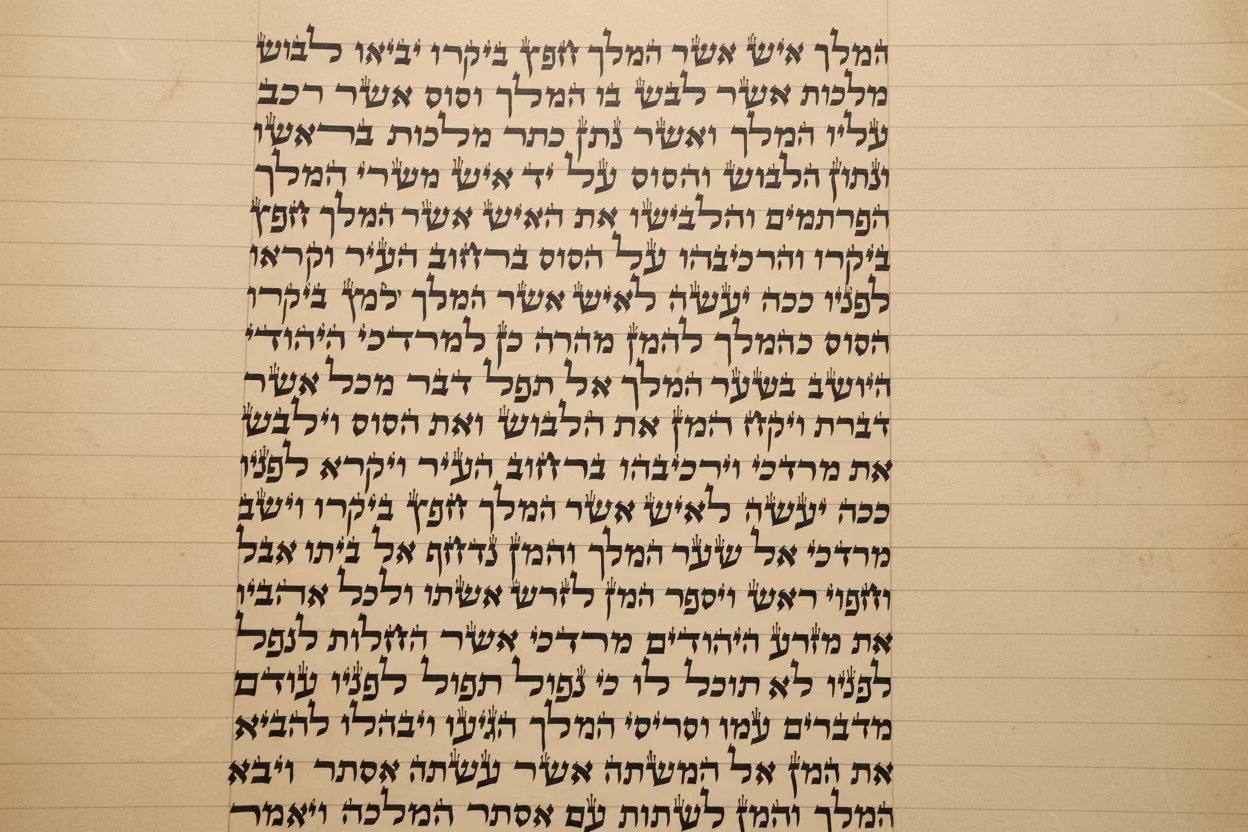 המלך איש אשר המלך חפץ ביקרו יביאו לבוש
מלכות אשר לבש בו המלך וסוס אשר רכב
עליו המלך ואשר נתן כתר מלכות בראשו
ונתון הלבוש והסוס על יד איש משרי המלך
הפרתמים והלבישו את האיש אשר המלך חפץ
ביקרו והרכיבהו על הסוס ברחוב העיר וקראו
לפניו ככה יעשה לאיש אשר המלך ביקרו
הסוס כהמלך להמן מהרה כן למרדכי היהודי
היושב בשער המלך אל תפל דבר מכל אשר
דברת ויקח המן את הלבוש ואת הסוס וילבש
את מרדכי וירכיבהו ברחוב העיר ויקרא לפניו
ככה יעשה לאיש אשר המלך חפץ ביקרו וישב
מרדכי אל שער המלך והמן נדחף אל ביתו אבל
וחפוי ראש ויספר המן לזרש אשתו ולכל אהביו
את מזרע היהודים מרדכי אשר החלות לנפל
לפניו לא תוכל לו כי נפול תפול לפניו עודם
מדברים עמו וסריסי המלך הגיעו ויבהלו להביא
את המן אל המשתה אשר עשתה אסתר ויבא
המלך והמן לשתות עם אסתר המלכה ויאמר